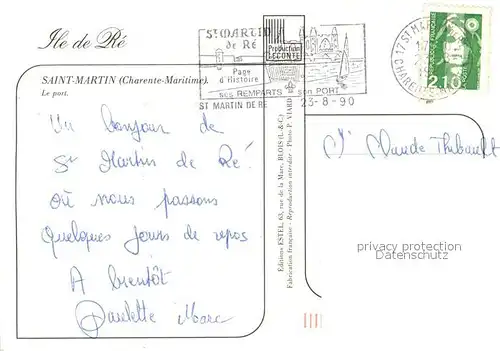 Ile de Ré
SAINT-MARTIN (Charente-Maritime).
Le port.
St MARTIN
de RÉ
Page
d'Histoire
ses REMPARTS son PORT
ST MARTIN DE RÉ 23-8-90
Production
LECONTE
17 ST MAR
CHARENTE
2,10
Un bonjour de
St Martin de Ré.
où nous passons
Quelques jours de repos
A bientôt
Paulette Marc
Editions ESTEL, 63, rue de la Mare, BLOIS (L.-&-C.)
Fabrication française - Reproduction interdite - Photo P. VIARD
Mr Claude Thibault
privacy protection
Datenschutz